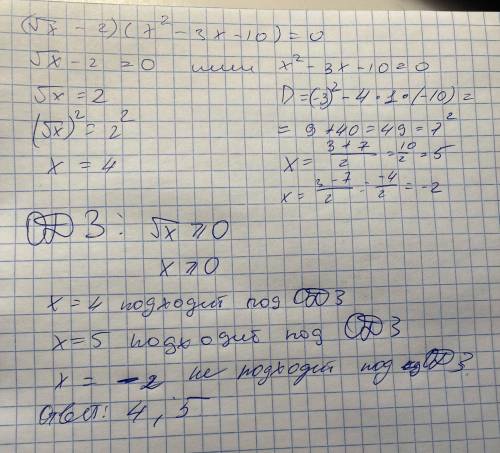 (√x - 2)(x² - 3x - 10) = 0
√x - 2 = 0 или x² - 3x - 10 = 0
√x = 2
(√x)² = 2²
x = 4
D = (-3)² - 4 · 1 · (-10) =
= 9 + 40 = 49 = 7²
x = (3 + 7)/2 = 10/2 = 5
x = (3 - 7)/2 = -4/2 = -2
ОДЗ: √x ⩾ 0
x ⩾ 0
x = 4 подходит под ОДЗ
x = 5 подходит под ОДЗ
x = -2 не подходит под ОДЗ.
Ответ: 4, 5